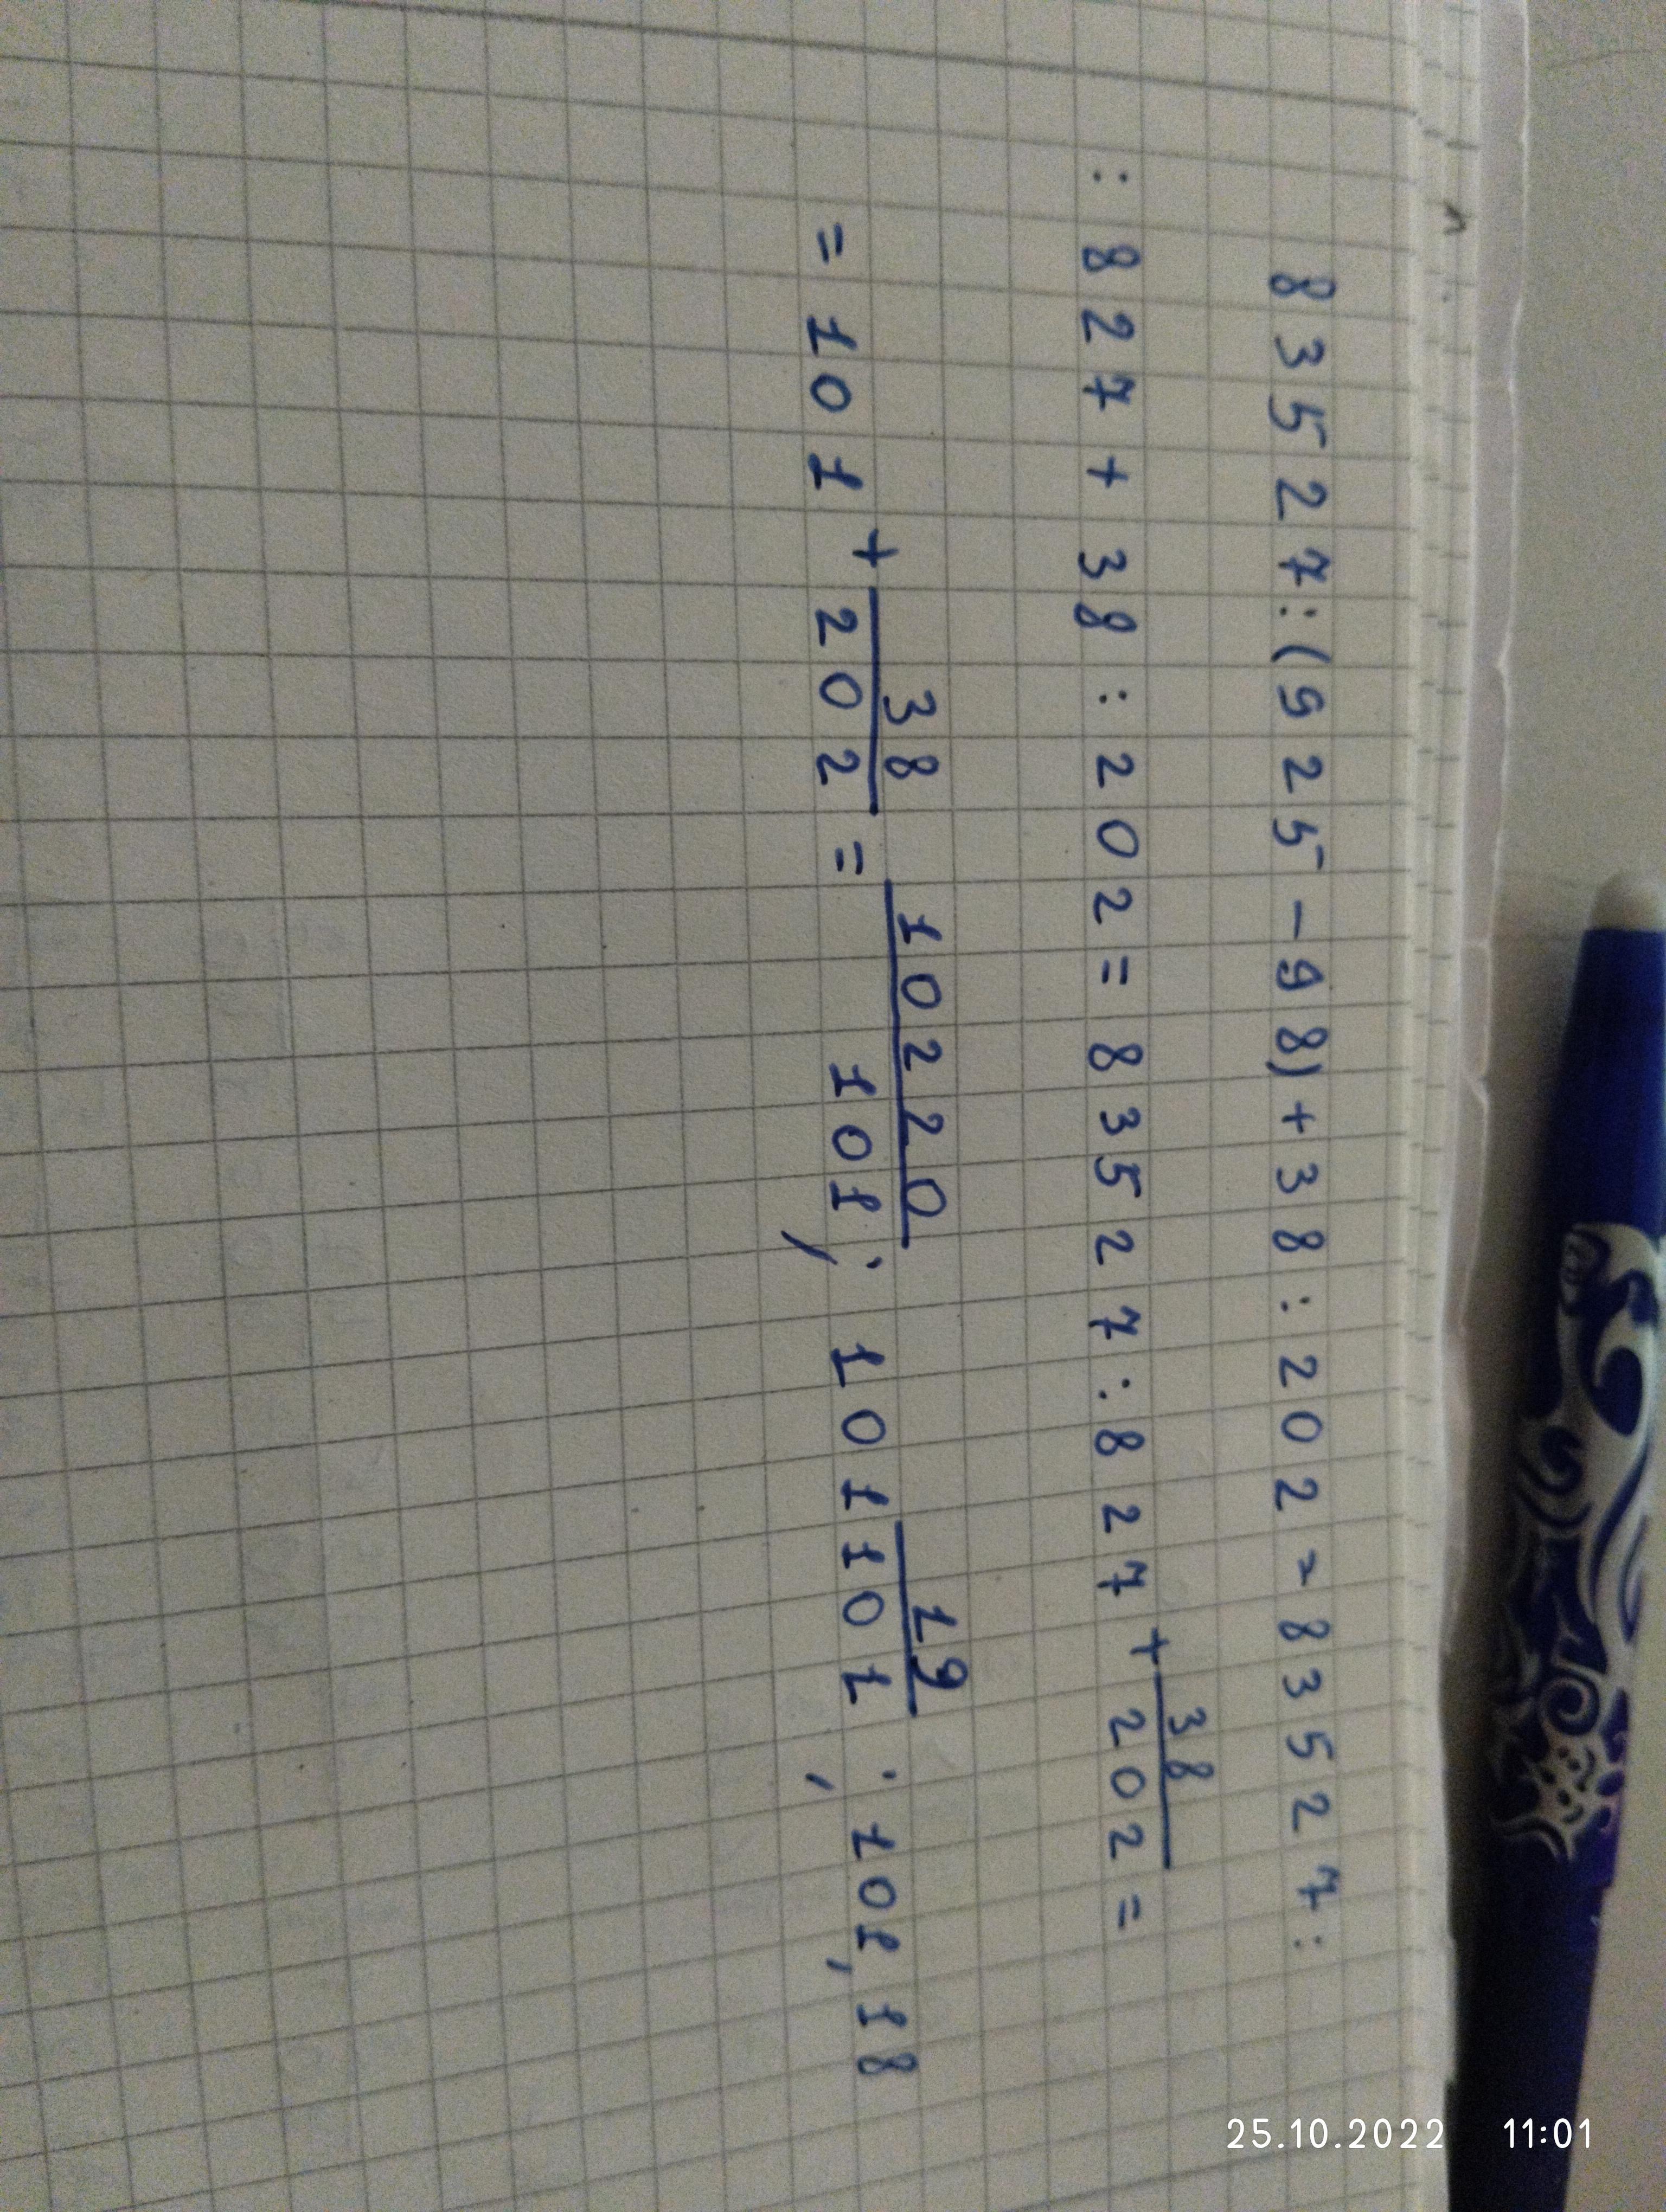 83527:(925-98)+38:202=83527:
:827+38:202=83527:827+38/202=
=101+38/202=10220/101; 101 19/101; 101,18
25.10.2022 11:01